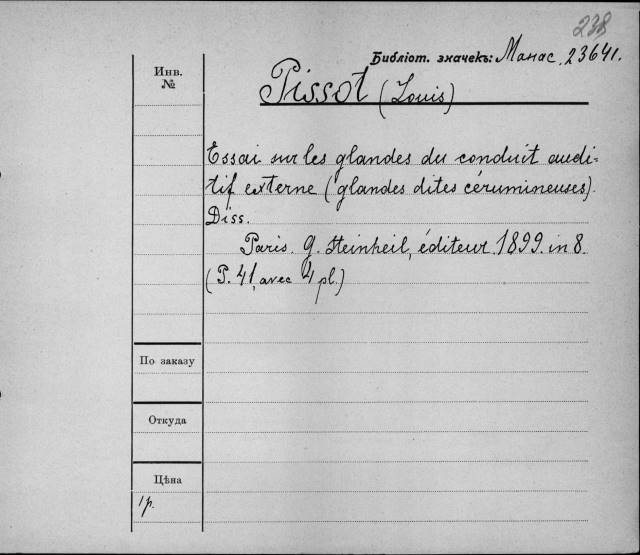 238
Библіот. значекъ: Манас. 23641.
Инв.
№
Pissot (Louis)
Essai sur les glandes du conduit audi-
tif externe (glandes dites cérumineuses).
Diss.
Paris. G. Steinheil, éditeur. 1899. in 8.
(P. 41, avec 4 pl.)
По заказу
Откуда
Цѣна
1 р.